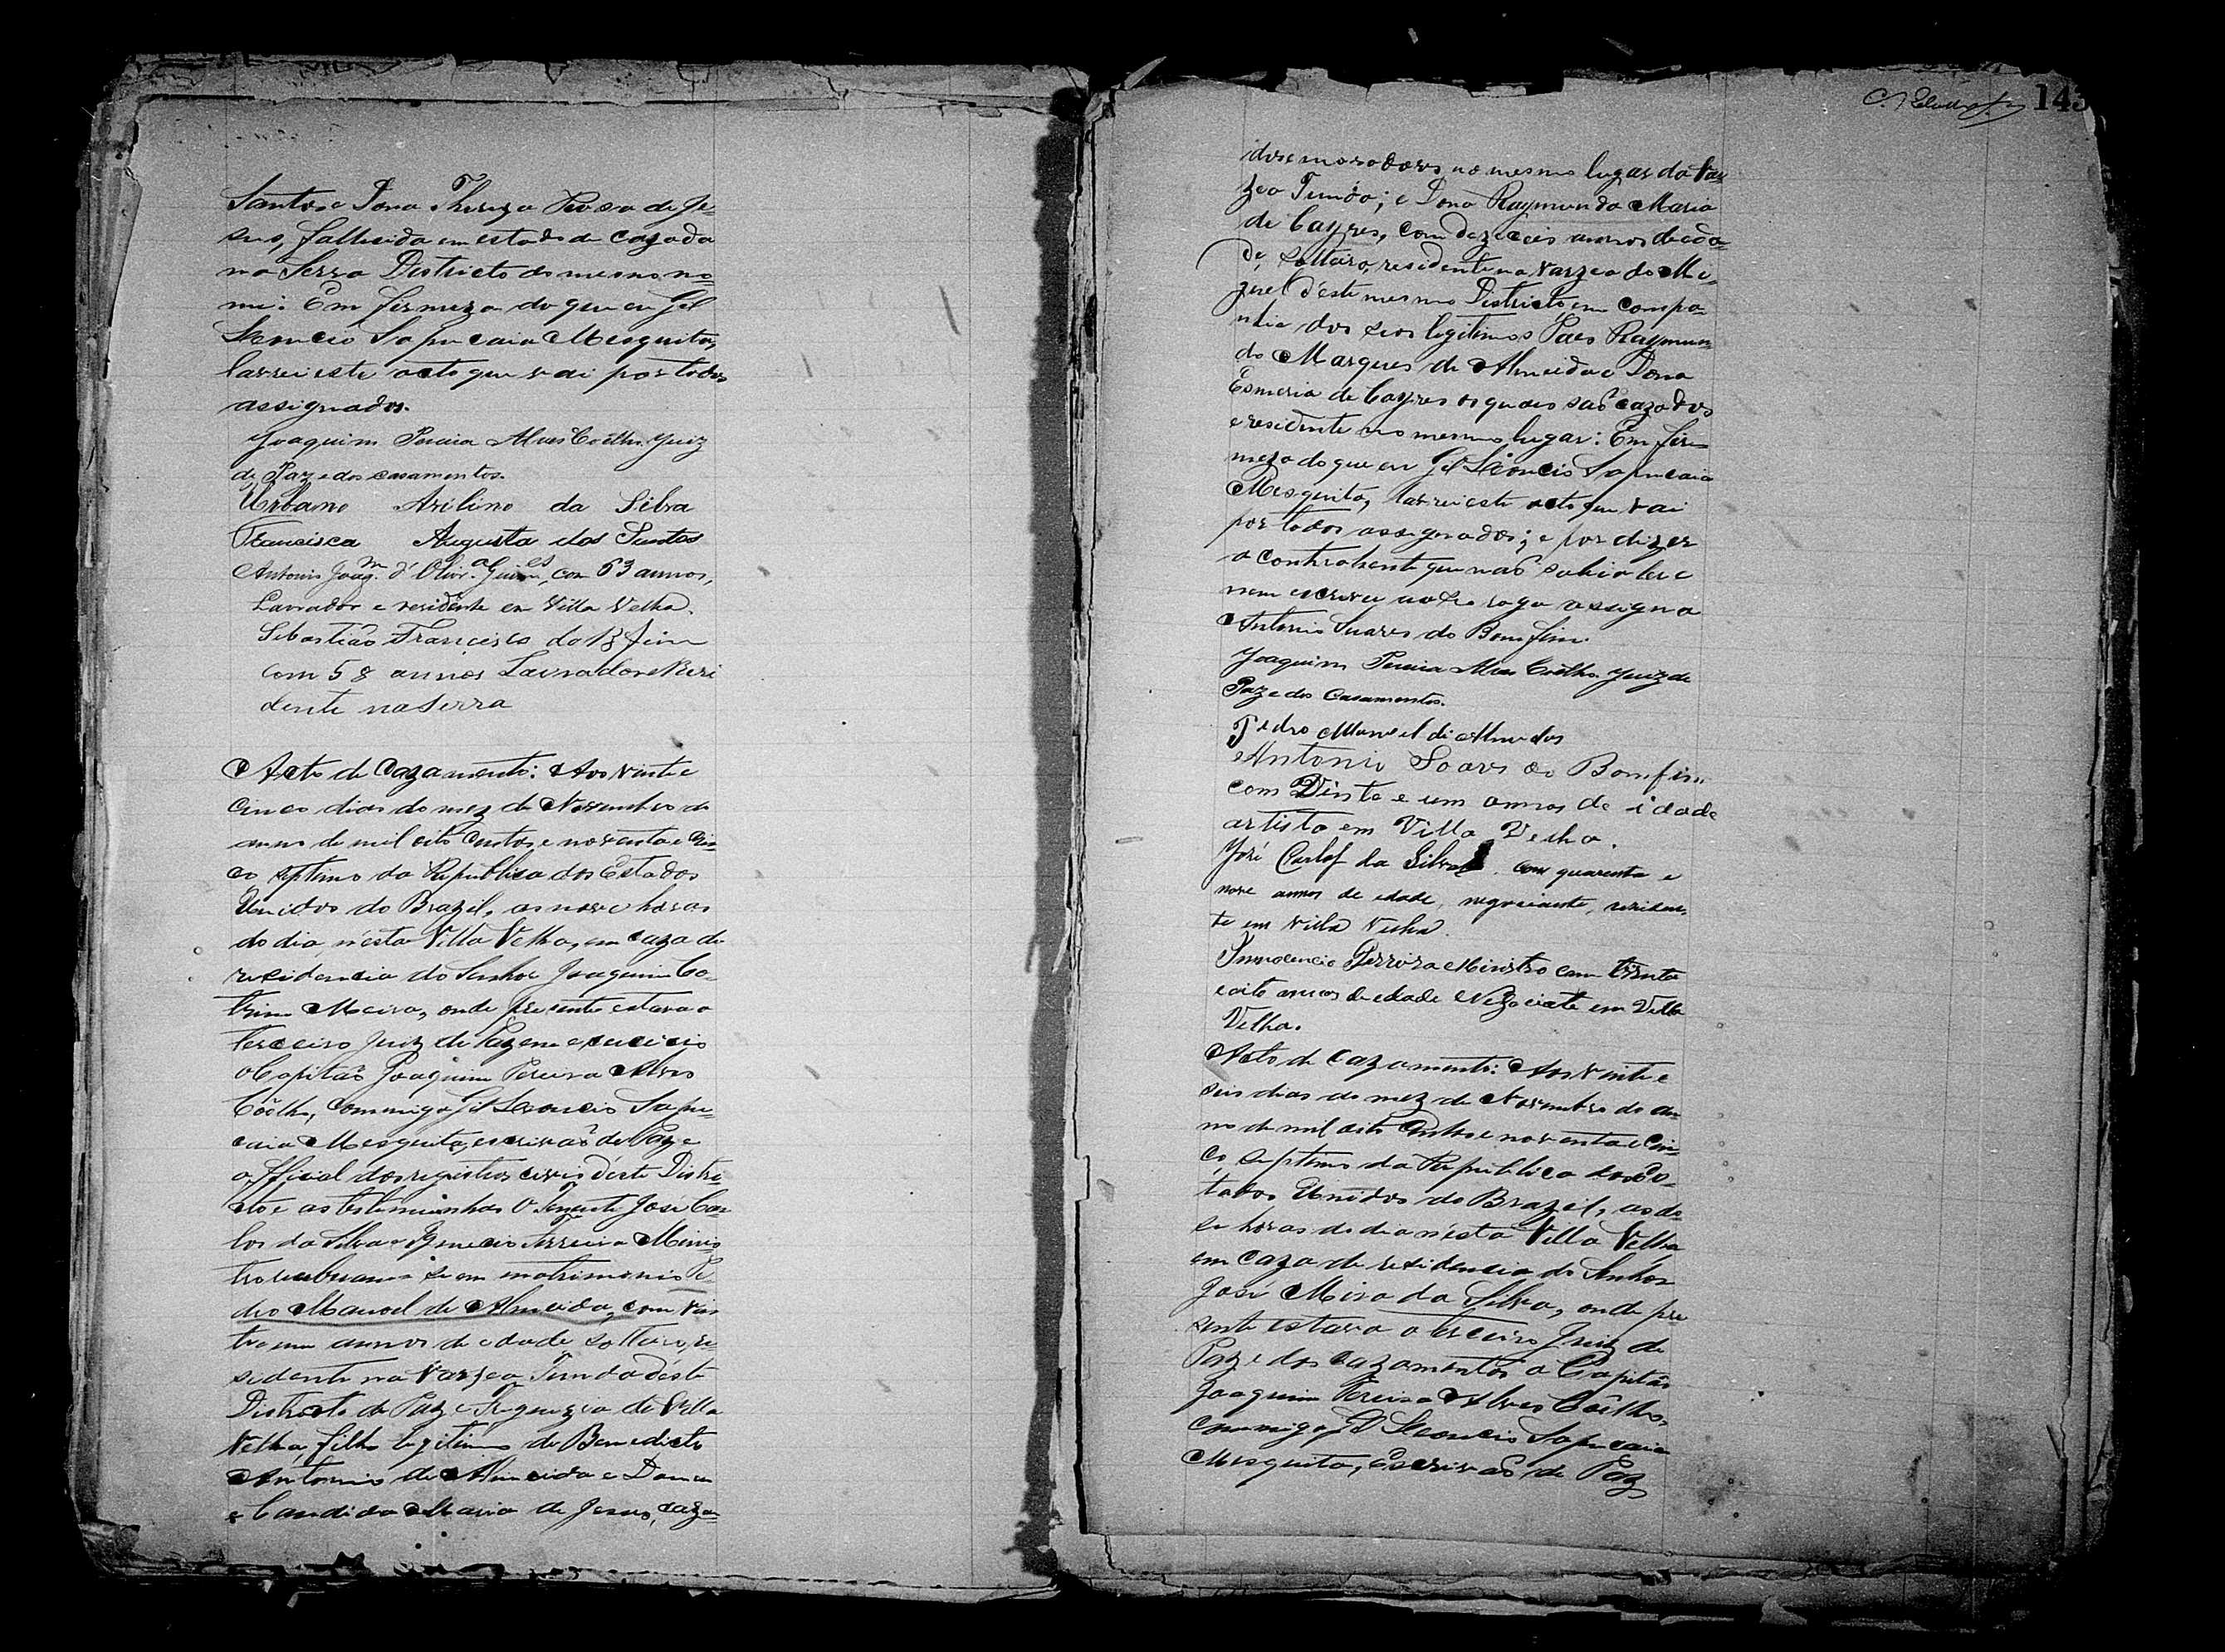 Santos e Dona Thereza Rosa de Je-
sus, fallecida em estado de cazada
na Serra Districto do mesmo no-
me: Em firmeza do que eu Gil
Leoncio Sapucaia Mesquita,
larrei este acto que vai por todos
assignados.
Joaquim Pereira Alves Coêlho. Juiz
de Paz e dos casamentos.
Urbano Avilino da Silva
Francisca Augusta dos Santos
Antonio Joaqm. d'Olivra. Guimes. com 63 annos,
Lavrador e residente em Villa Velha.
Sebastião Francisco do Bfim
com 58 annos Lavrador e Resi
dente na Serra
Acto de Cazamento: Aos vinte e
cinco dias do mez de Novembro do
anno de mil oito centos e noventa e cin-
co septimo da Republica dos Estados
Unidos do Brazil, as nove horas
do dia, n'esta Villa Velha, em caza de
residencia do Senhor Joaquim Co-
trim Meira, onde presente estava o
terceiro Juiz de Paz em exercicio
o Capitão Joaquim Pereira Alves
Coêlho, commigo Gil Leoncio Sapu-
caia Mesquita, escrivão de Paz e
official dos registros civis d'este Distri-
cto e as testemunhas O Tenente José Car
los da Silva e Ferreira Minis-
tro receberam se em matrimonio Pe-
dro Manoel de Almeida, com vin
te e um annos de edade solteiro, re-
sidente na Varzea Funda d'este
Districto de Paz e Freguezia de Villa
Velha, filho legitimo de Benedicto
Antonio de Almeida e Dona
Candida Maria de Jesus, caza-
dos e moradores no mesmo lugar da Var
zea Funda; e Dona Raymunda Maria
de Cayres, com dezeceis annos de eda-
de, solteira, residente na Varzea do Mi-
guel d'este mesmo Districto, em compa-
nhia dos seos legitimos Paes Raymun-
do Marques de Almeida e Dona
Esmeria de Cayres os quaes são cazados
e residente no mesmo lugar: Em fir-
meza do que eu Gil Leoncio Sapucaia
Mesquita, larrei este acto que vai
por todos assignados; e por dizer
a contrahente que não sabia ler e
nem escrever a seo rogo assigna
Antonio Suares do Bomfim.
Joaquim Pereira Alves Coêlho. Juiz de
Paz e dos Casamentos.
Pedro Manoel di Almedas
Antonio Soares do Bomfim
com Vinte e um annos de idade
artista em Villa Velha.
José Carlos da Silva com quarenta e
nove annos de edade, negociante, residen-
te em Villa Velha.
Innocencio Ferreira Ministro com trinta
e oito annos de edade Negociate em Villa
Velha.
Acto de Cazamento: Aos vinte e
seis dias do mez de Novembro do an-
no de mil oito centos e noventa e cin-
co septimo da Republica dos Es-
tados Unidos do Brazil, as do-
se horas do dia n'esta Villa Velha
em caza de residencia do Senhor
José Mira da Silva, onde pre
sente estava o terceiro Juiz de
Paz e dos cazamentos o Capitão
Joaquim Pereira Alves Coêlho,
commigo Gil Leoncio Sapucaia
Mesquita, escrivão de Paz
143